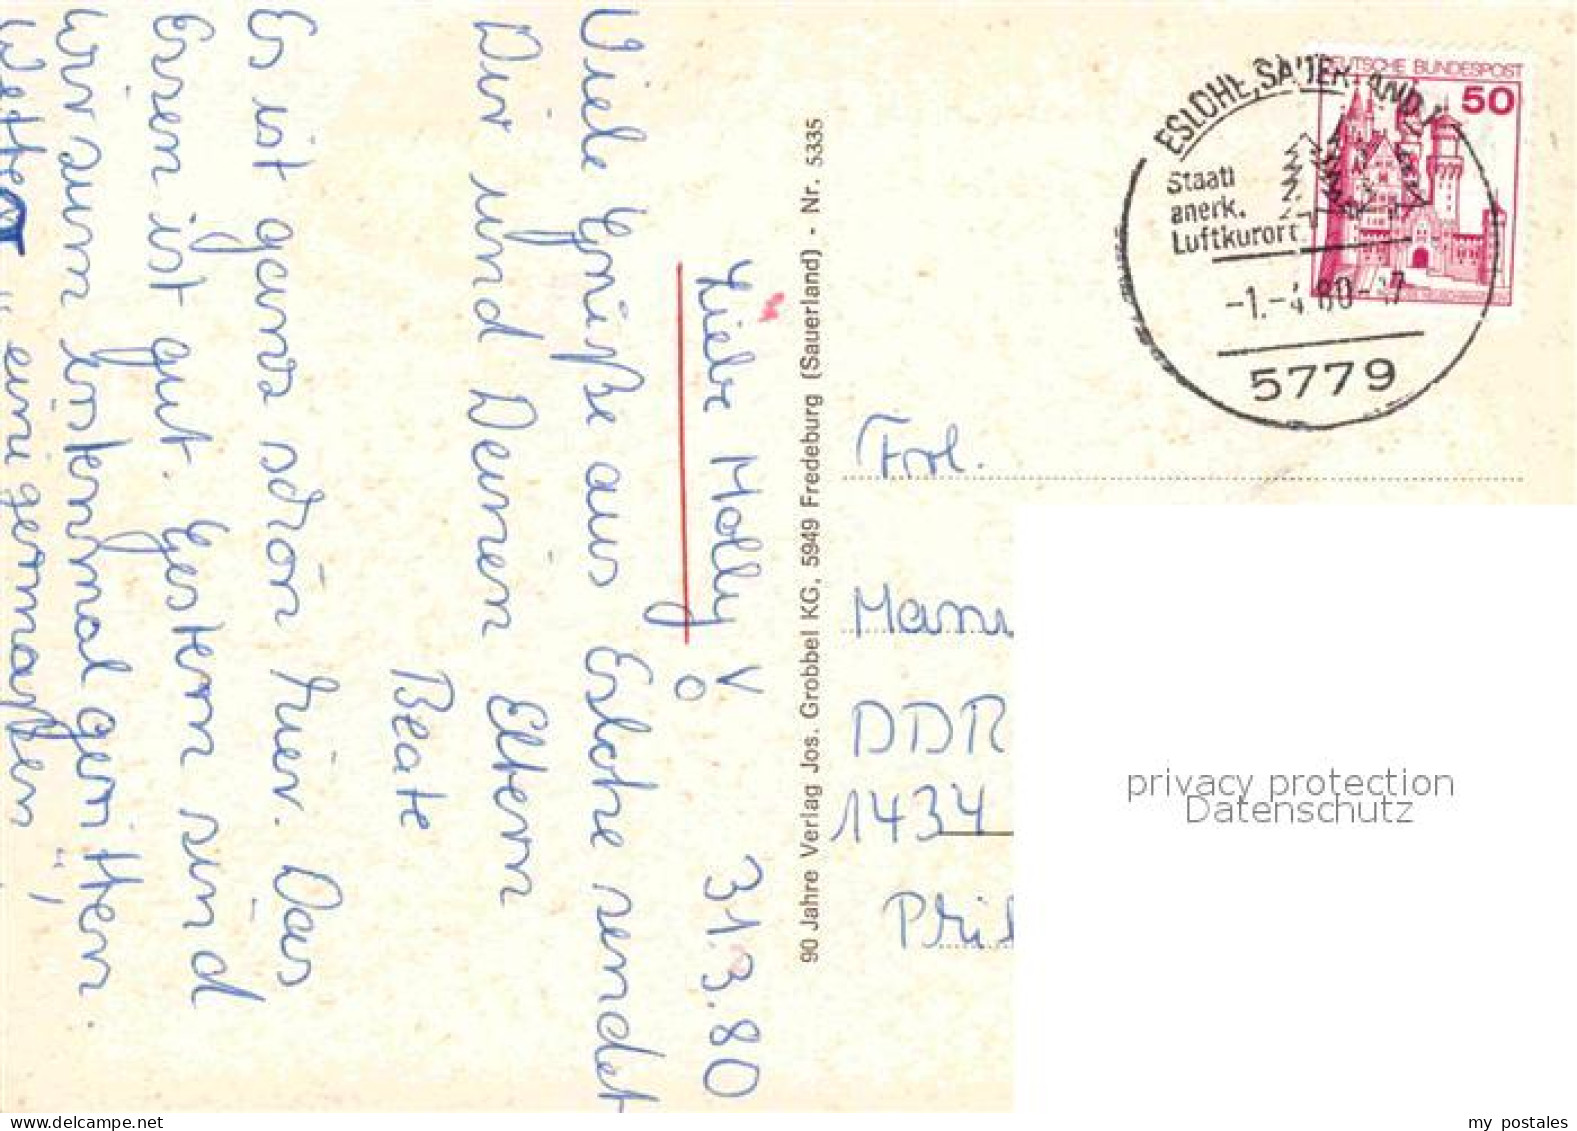 31.3.80
Liebe Molly!
Viele Grüße aus Eslohe sendet
Dir und Deinen Eltern
Beate
Es ist ganz schön hier. Das
Essen ist gut. Gestern sind
wir zum erstenmal geritten.
Wetter: einigermaßen
90 Jahre Verlag Jos. Grobbel KG, 5949 Fredeburg (Sauerland) - Nr. 5335
DEUTSCHE BUNDESPOST
50
ESLOHE, SAUERLAND 1
Staatl
anerk.
Luftkurort
-1.-4.80-17
5779
Frl.
DDR
1434
privacy protection
Datenschutz
my postales